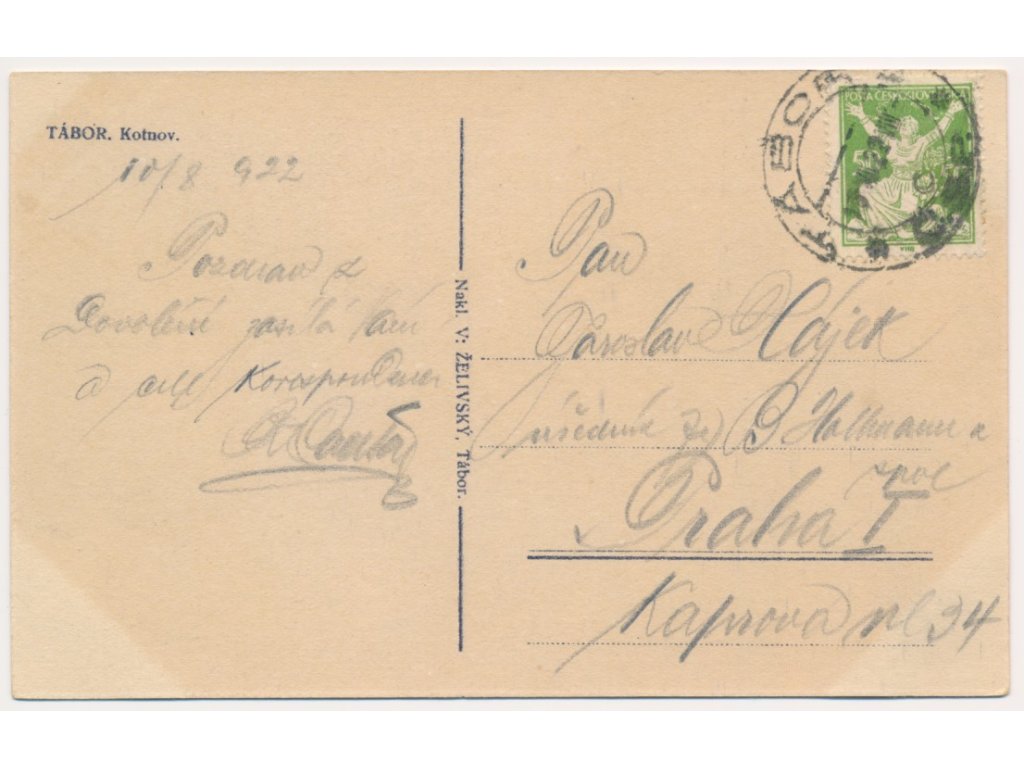 TÁBOR. Kotnov.
10/8 922
Pozdrav z
Dovolení zasílá Vám
a celé Korespondenci
Nakl. V: ŽELIVSKÝ, Tábor.
TÁBOR
POŠTA ČESKOSLOVENSKÁ
Pan
Jaroslav Hájek
úředník fy B Hollmann a
spol
v Praha I
Kaprova ul 34